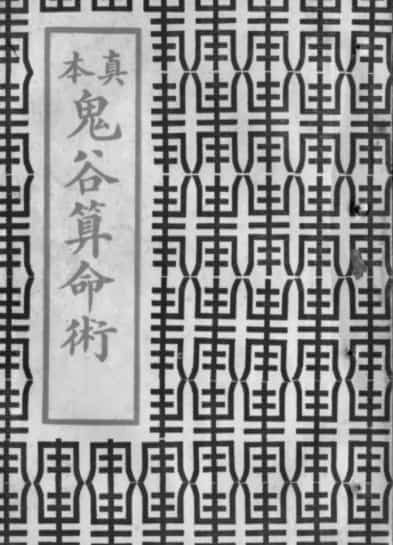 真本
鬼谷算命術